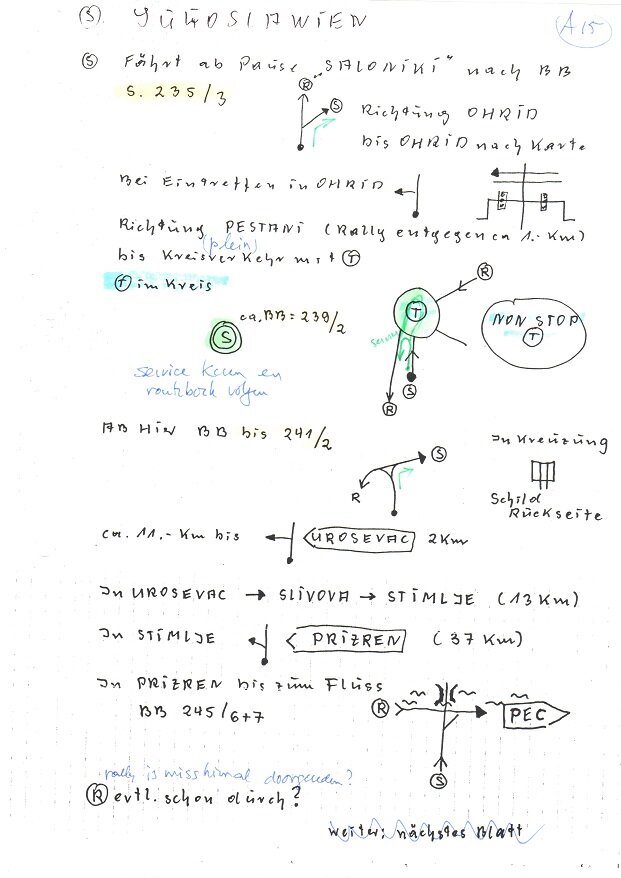 (S). JUGOSLAWIEN
A15
(S) Fährt ab Pause „SALONIKI" nach BB
S. 235/3
R
S
Richtung OHRID
bis OHRID nach Karte
Bei Eintreffen in OHRID
Richtung PESTANI (Rally entgegen ca 1.-Km)
(plein)
bis Kreisverkehr mit (T)
(T) im Kreis
R
T
service
S
R
NON STOP
T
ca. BB = 239/2
S
service keen en
routeboek volgen
AB Hier BB bis 241/2
S
R
In Kreuzung
Schild
Rückseite
ca. 11.-Km bis
UROSEVAC 2Km
In UROSEVAC → SLIVOVA → STIMLJE (13 Km)
In STIMLJE
PRIZREN (37 Km)
In PRIZREN bis zum Fluss
BB 245/6+7
R
PEC
S
rally is misschimal doorgenden?
(R) evtl. schon durch?
weiter: nächstes Blatt